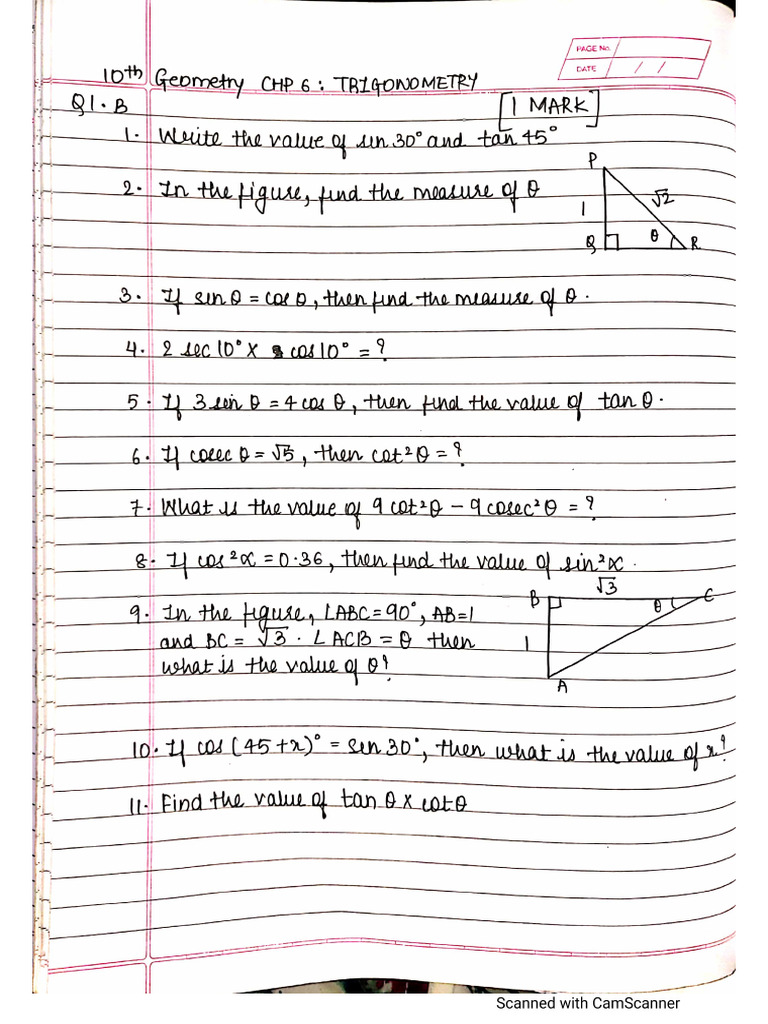 PAGE No.
DATE / /
10th Geometry CHP 6 : TRIGONOMETRY
Q1. B [1 MARK]
1. Write the value of sin 30° and tan 45°
2. In the figure, find the measure of θ
P
1
√2
Q
θ
R
3. If sin θ = cos θ, then find the measure of θ.
4. 2 sec 10° × cos 10° = ?
5. If 3 sin θ = 4 cos θ, then find the value of tan θ.
6. If cosec θ = √5, then cot²θ = ?
7. What is the value of 9 cot²θ – 9 cosec²θ = ?
8. If cos²x = 0.36, then find the value of sin²x.
9. In the figure, ∠ABC = 90°, AB = 1
and BC = √3. ∠ACB = θ then
what is the value of θ?
B
√3
C
θ
1
A
10. If cos (45 + x)° = sin 30°, then what is the value of x?
11. Find the value of tan θ × cot θ
Scanned with CamScanner